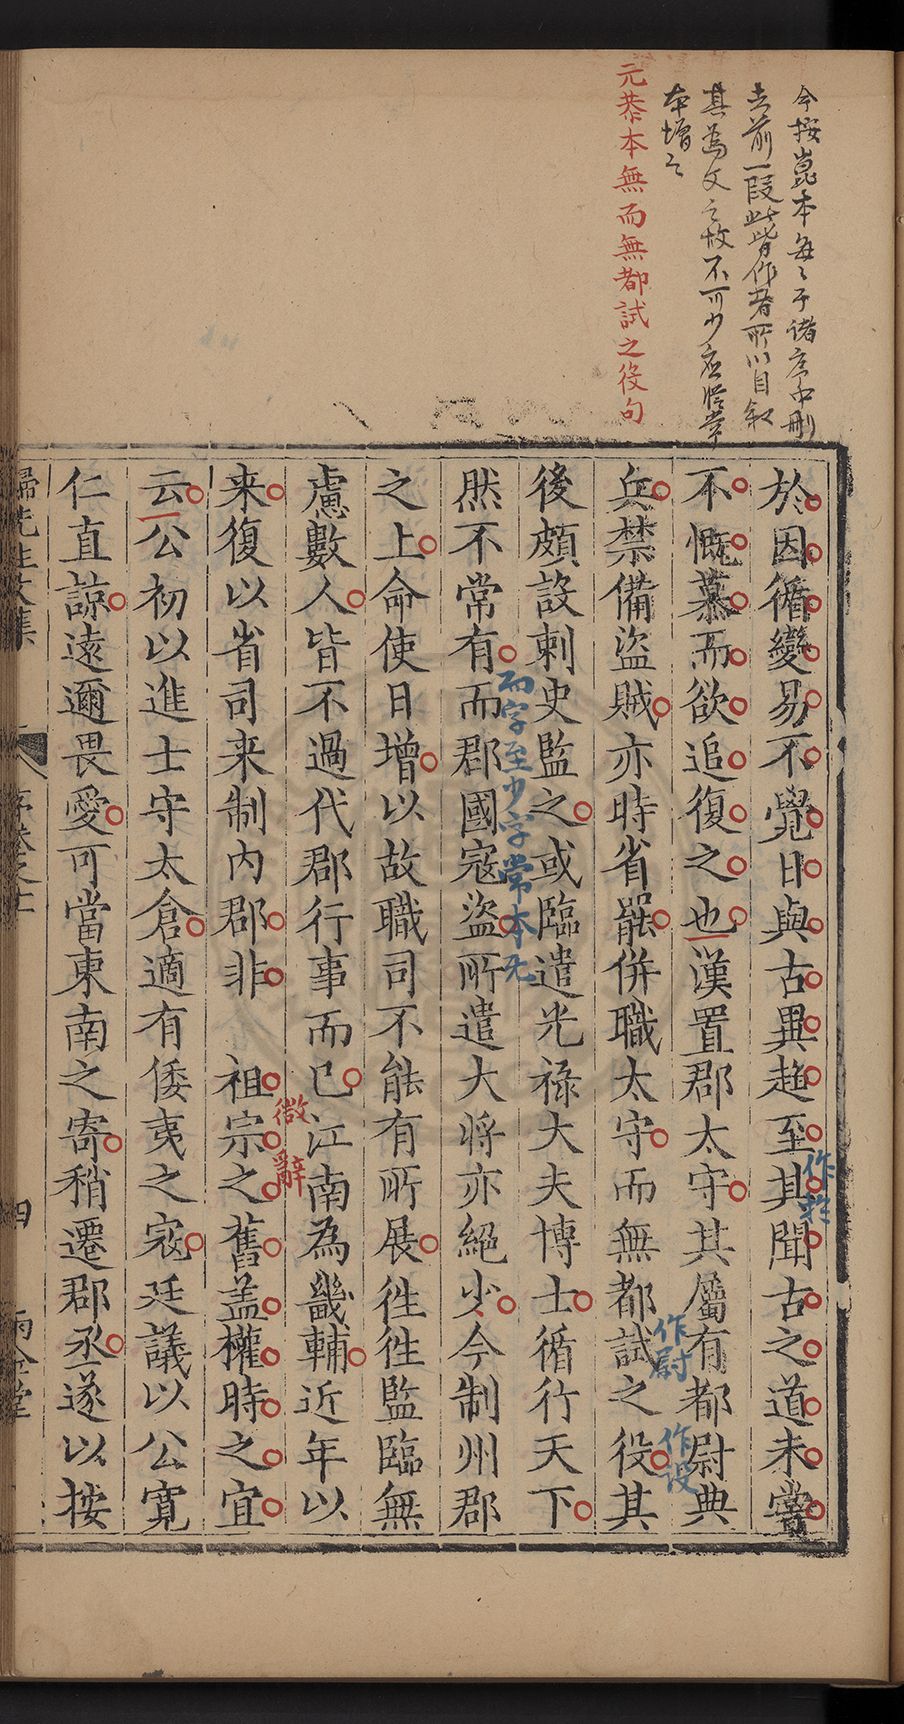 今按崑本每〻于諸序中刪
去前一段此皆作者所以自叙
其為文之故不可少应照常
本增之
元恭本無而無都試之役句
於因循變易不覺日與古異趋至其聞古之道未嘗
作於
不慨慕而欲追復之也漢置郡太守其屬有都尉典
兵禁備盜賊亦時省罷併職太守而無都試之役其
作尉
作设
後頗設刺史監之或臨遣光禄大夫博士循行天下
然不常有而郡國寇盜所遣大将亦絕少今制州郡
而字至少字常本无
之上命使日增以故職司不能有所展徃徃監臨無
慮數人皆不過代郡行事而已江南為畿輔近年以
微辭
来復以省司来制内郡非祖宗之舊盖權時之宜
云公初以進士守太倉適有倭夷之寇廷議以公寬
仁直諒遠邇畏愛可當東南之寄稍遷郡丞遂以按
歸先生文集
序卷之二
四
雨金堂